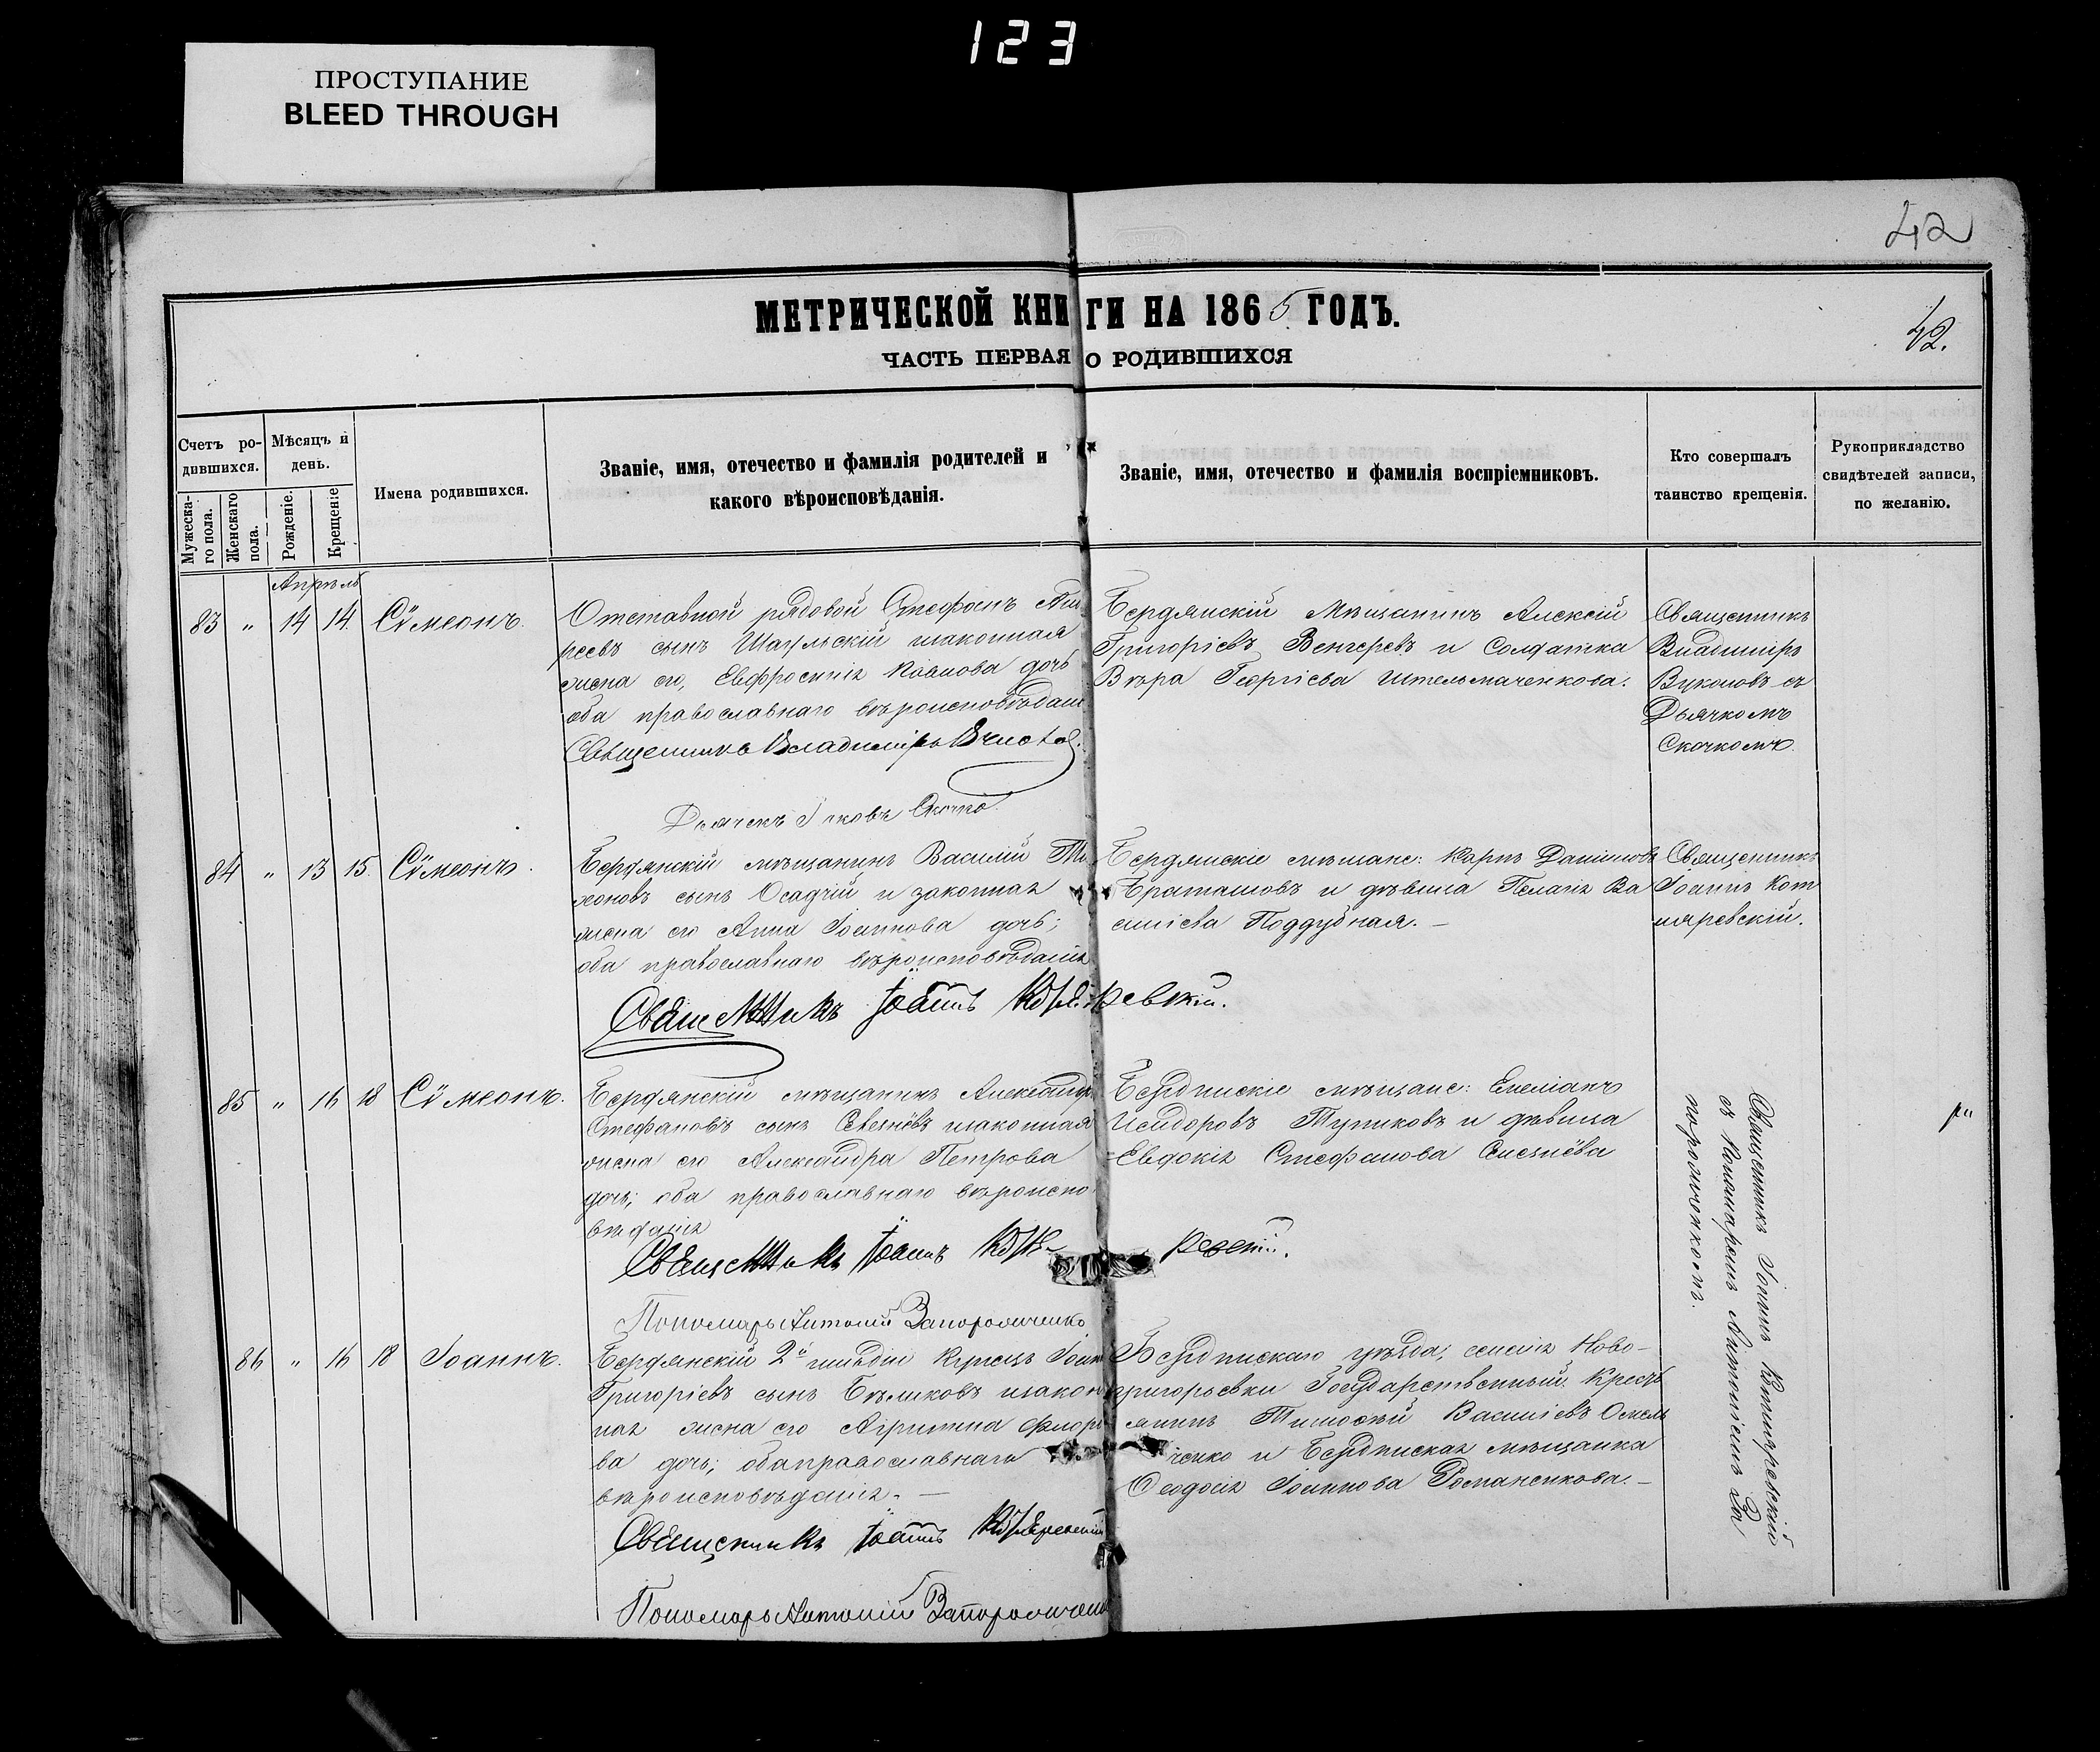 123
ПРОСТУПАНИЕ
BLEED THROUGH
42
МЕТРИЧЕСКОЙ КНИГИ НА 1865 ГОДЪ.
42.
ЧАСТЬ ПЕРВАЯ О РОДИВШИХСЯ
Счетъ ро-
дившихся.
Мужеска-
го пола.
Женскаго
пола.
Мѣсяцъ и
день.
Рожденіе.
Крещеніе
Имена родившихся.
Званіе, имя, отечество и фамилія родителей и
какого вѣроисповѣданія.
Званіе, имя, отечество и фамилія воспріемниковъ.
Кто совершалъ
таинство крещенія.
Рукоприкладство
свидѣтелей записи,
по желанію.
Апрѣль
83 " 14 14. Сѵмеонъ.
Отставной рядовой Стефанъ
реевъ сынъ изаконная
жена его, Евфросинія дочь
оба православнаго вѣроисповѣданія
Священникъ Владиміръ
Дьячекъ Іяковъ Скочко.
Бердянскій Мѣщанинъ Алексѣй
Григоріевъ Венгеревъ и Солдатка
Вѣра Георгіева Штельмаченкова.
Священникъ
Владиміръ
съ
Дьячкомъ
Скочкомъ.
84 " 13 15. Сѵмеонъ.
Бердянскій мѣщанинъ Василій Ти
хоновъ сынъ Осадчій и законная
жена его Анна Іоаннова дочь;
оба православнаго вѣроисповѣданія
Священникъ Іоаннъ Котляревскій.
Бердянскіе мѣщане: Карпъ Даниловъ
Браташовъ и дѣвица Пелагія Ва
силіева Поддубная. —
Священникъ
Іоаннъ Кот
ляревскій.
85 " 16 18 Сѵмеонъ.
Бердянскій мѣщанинъ Александръ
Стефановъ сынъ Селезнёвъ изаконная
жена его Александра Петрова
дочь; оба православнаго вѣроиспо
вѣданія
Священникъ Іоаннъ Котляревскій.
Пономарь Антоній Запорожченко
Бердянскіе мѣщане: Емеліанъ
Исидоровъ Тупиковъ и дѣвица
Евдокія Стефанова Селезнёва
Священникъ Іоаннъ Котляревскій
съ Пономаремъ Антоніемъ За
порожченкомъ.
86 " 16 18 Іоаннъ.
Бердянскій 2й гильдіи Купецъ Іоан
Григоріевъ сынъ Бѣликовъ изакон
ная жена его Агрипина Флоро
ва дочь; оба православнаго
вѣроисповѣданія. —
Священникъ Іоаннъ Котляревскій
Пономарь Антоній Запорожченко
Бердянскаго уѣзда, селенія Ново-
григорьевки Государственный Кресть
янинъ Тимофей Василіевъ Омель
ченко и Бердянская мѣщанка
Ѳеодосія Іоаннова Романенкова. —